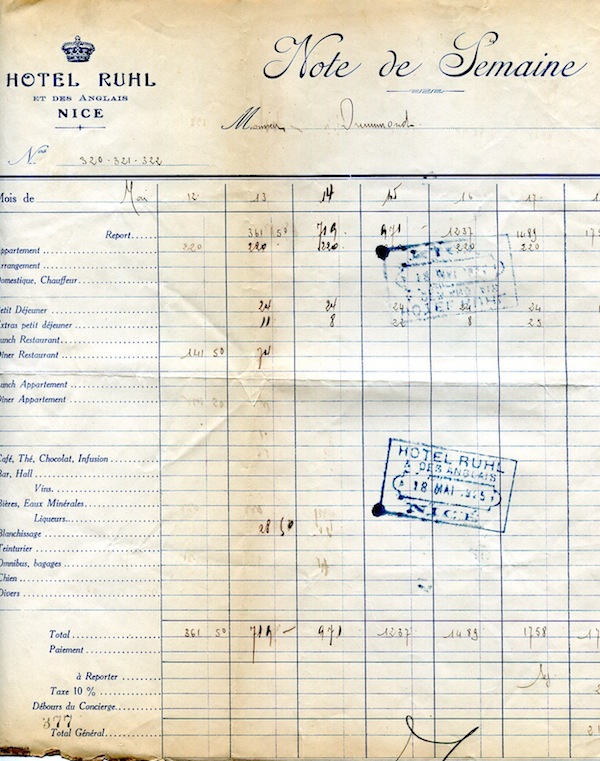 HOTEL RUHL
ET DES ANGLAIS
NICE
Note de Semaine
Monsieur Drummond
Nos 320-321-322
Mois de Mai 12 13 14 15 16 17
Report...... 361 50 719 971 1237 1489
Appartement 220 220 220 220 220
Arrangement
Domestique, Chauffeur
Petit Déjeuner 24 24 24 24 24
Extras petit déjeuner 11 8 22 8 25
Lunch Restaurant
Dîner Restaurant 141 50 74
Lunch Appartement
Dîner Appartement
Café, Thé, Chocolat, Infusion
Bar, Hall
Vins
Bières, Eaux Minérales
Liqueurs
Blanchissage 28 50
Teinturier
Omnibus, bagages
Chien
Divers
HOTEL RUHL
& DES ANGLAIS
18 MAI
NICE
Total 361 50 719 - 971 1237 1489 1758
Paiement
à Reporter
Taxe 10 %
Débours du Concierge
377
Total Général